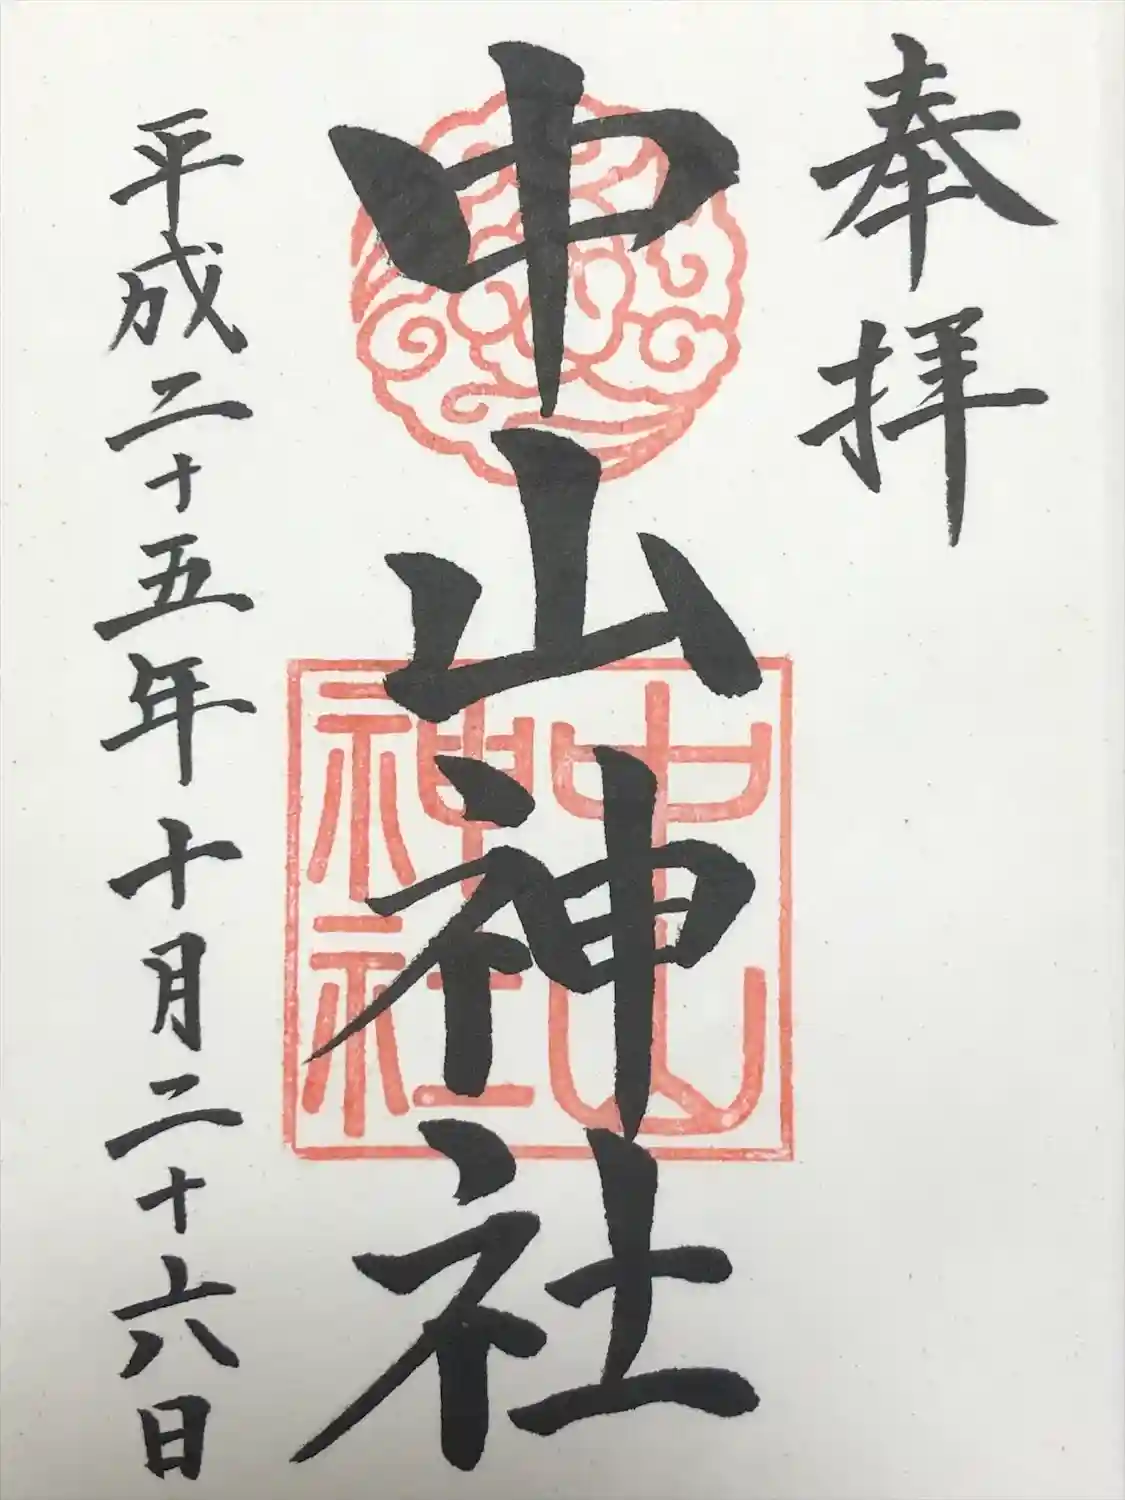 奉拝
中山神社
中山
神社
平成二十五年十月二十六日